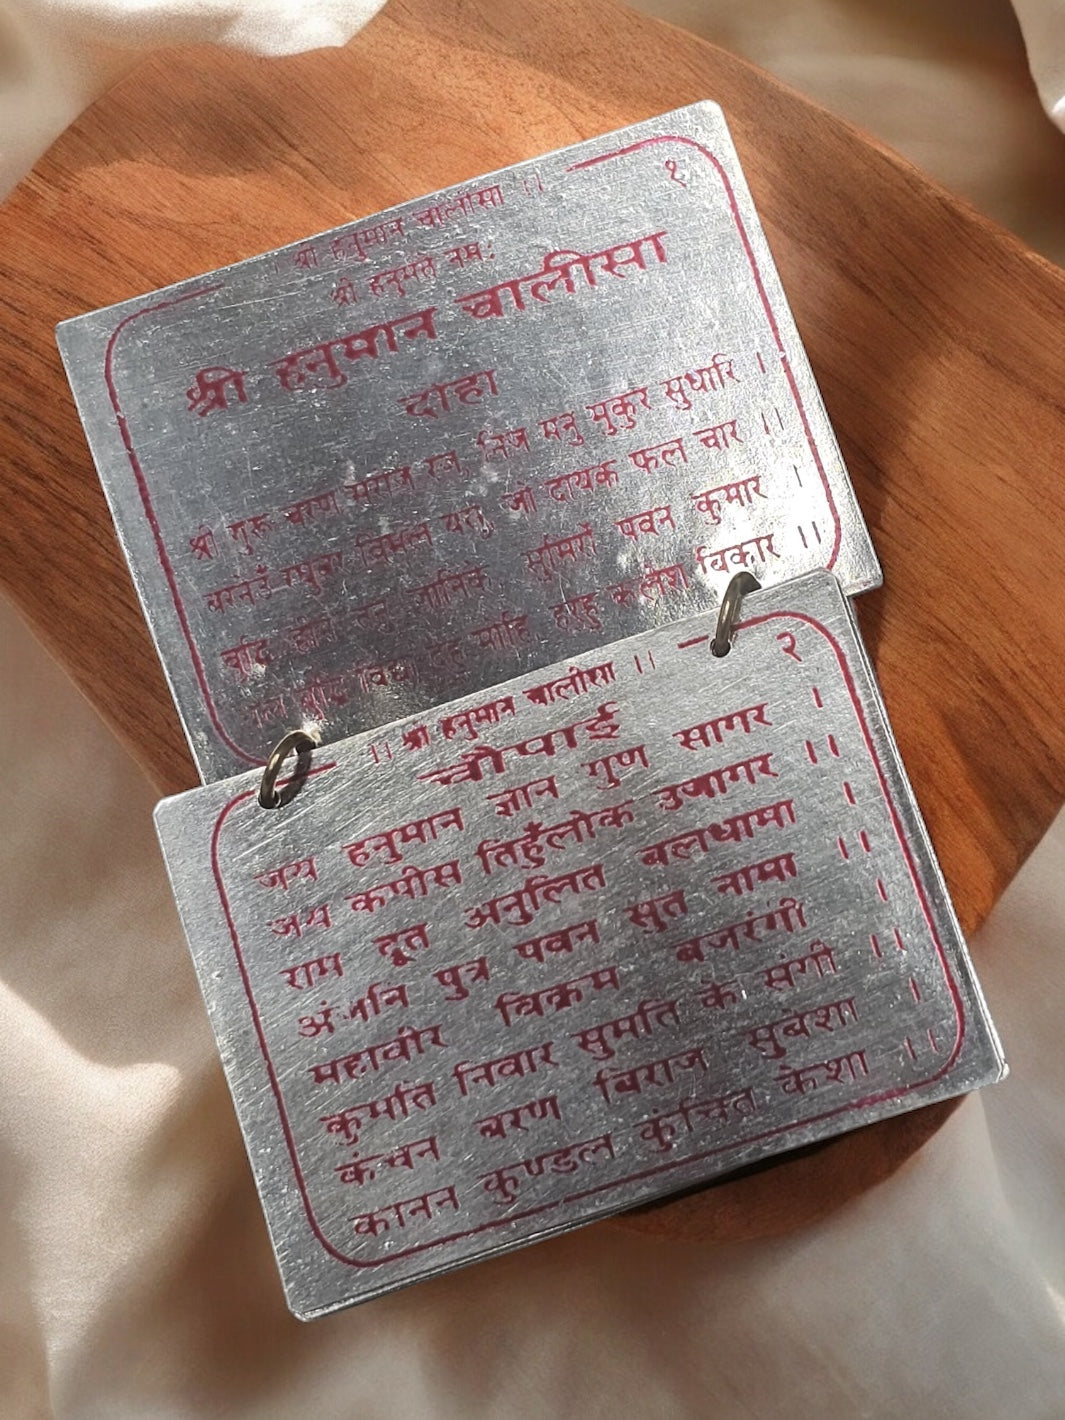 । श्री हनुमान चालीसा ।।
१
श्री हनुमते नमः
श्री हनुमान चालीसा
दोहा
श्री गुरू चरण सरोज रज, निज मनु मुकुर सुधारि ।
बरनेउँ रघुवर विमल यशु, जो दायक फल चार ।।
बुद्धि हीन तनु जानिके, सुमिरौं पवन कुमार ।
बल बुद्धि विद्या देहु मोहि, हरहु कलेश विकार ।।
।। श्री हनुमान चालीसा ।।
२
चौपाई
जय हनुमान ज्ञान गुण सागर ।
जय कपीस तिहुँलोक उजागर ।।
राम दूत अनुलित बलधामा ।
अंजनि पुत्र पवन सुत नामा ।।
महावीर विक्रम बजरंगी ।
कुमति निवार सुमति के संगी ।।
कंचन बरण विराज सुवेशा ।
कानन कुण्डल कुंचित केशा ।।